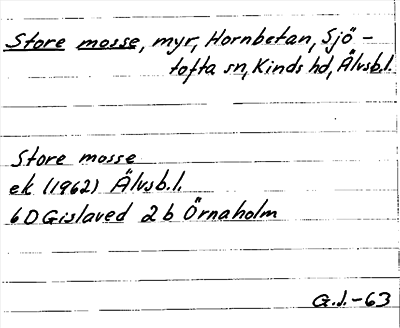 Store mosse, myr, Hornbetan, Sjö-
tofta sn, Kinds hd, Älvsb.l.
Store mosse
ek (1962) Älvsb.l.
6D Gislaved 2b Örnaholm
G.J.-63